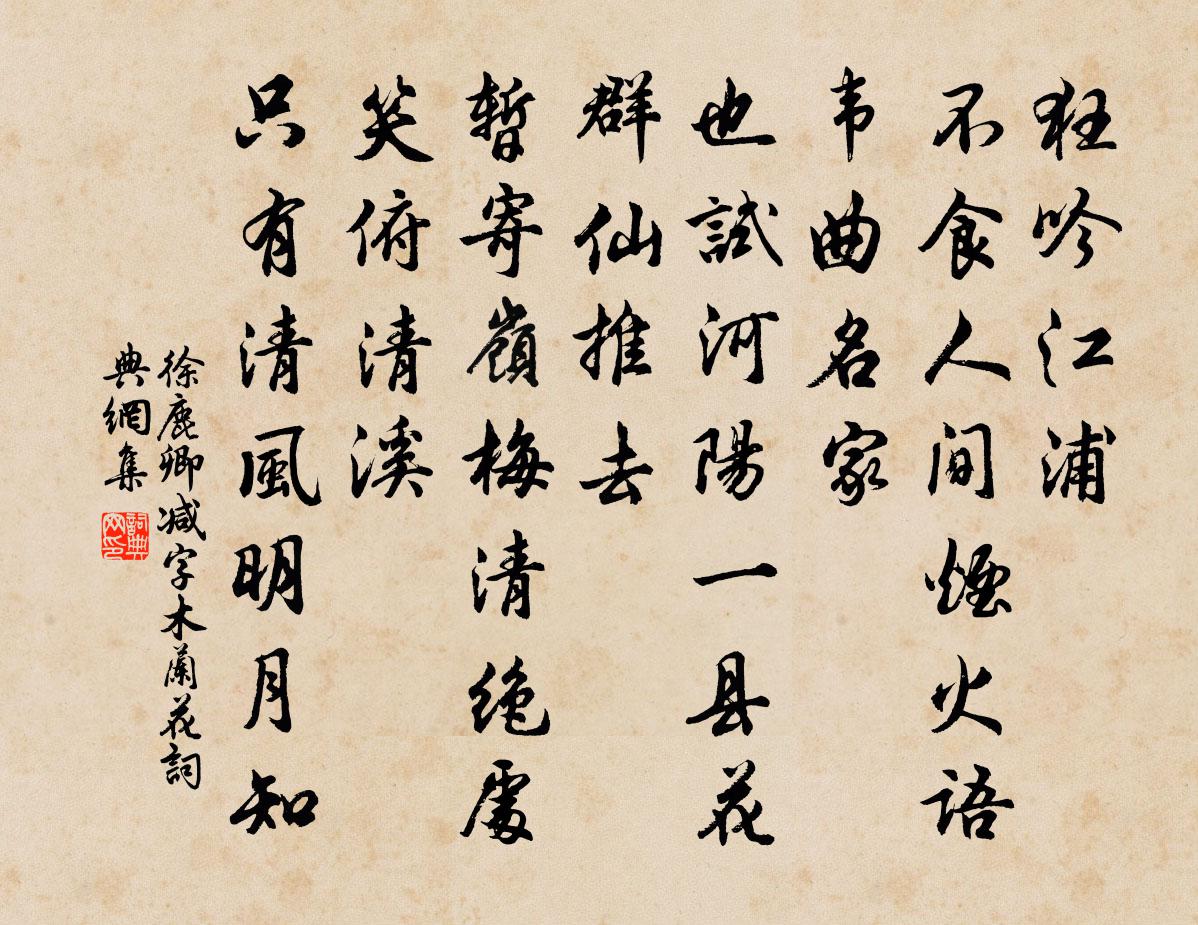 狂吟江浦
不食人间煙火語
韦曲名家
也試河陽一县花
群仙推去
暫寄嶺梅清绝處
笑俯清溪
只有清風明月知
徐鹿卿减字木蘭花詞
典網集
詞典网印